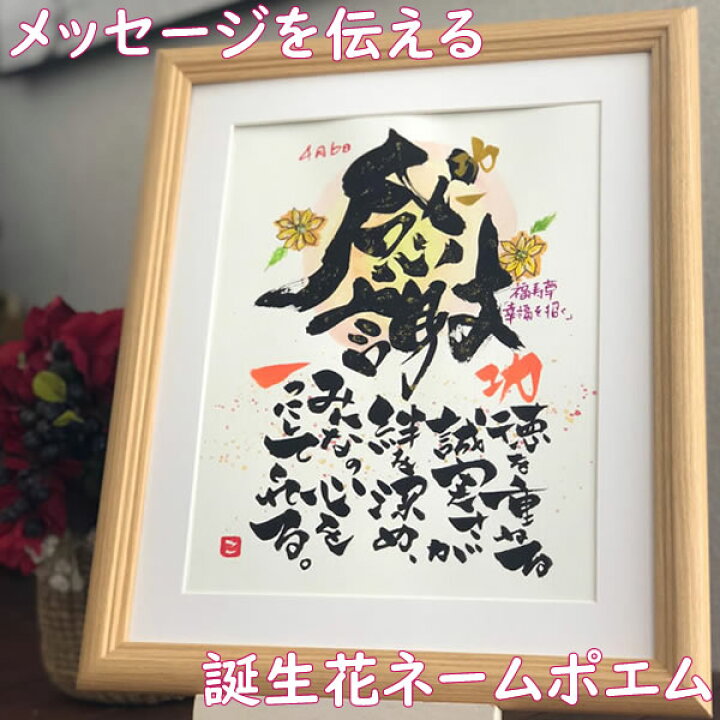 メッセージを伝える
4月6日
功
感謝
福寿草
「幸福を招く」
功
徳を重ねる
誠実さが
絆を深め、
みんなの心を
一つにしてくれる。
こ
誕生花ネームポエム